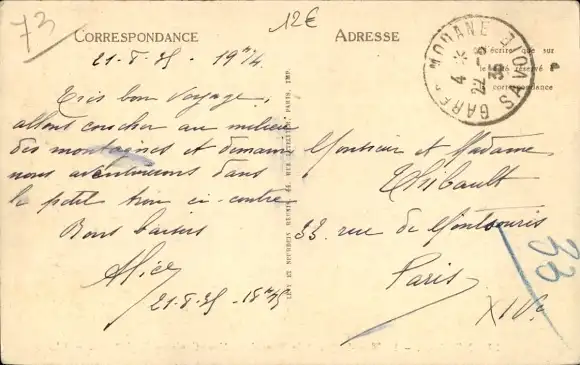 73
12€
CORRESPONDANCE
21-8-35 - 19h14
Très bon voyage,
allons coucher au milieu
des montagnes et demain
nous aventurerons dans
le petit trou ci-contre
Bons baisers
Alice
21-8-35 - 18h45
ADRESSE
n'écrire que sur
le côté réservé
correspondance
GARE MODANE SAVOIE
4 *
22 - 8
35
Monsieur et Madame
Thibault
33 rue de Montsouris
Paris
XIVe
33